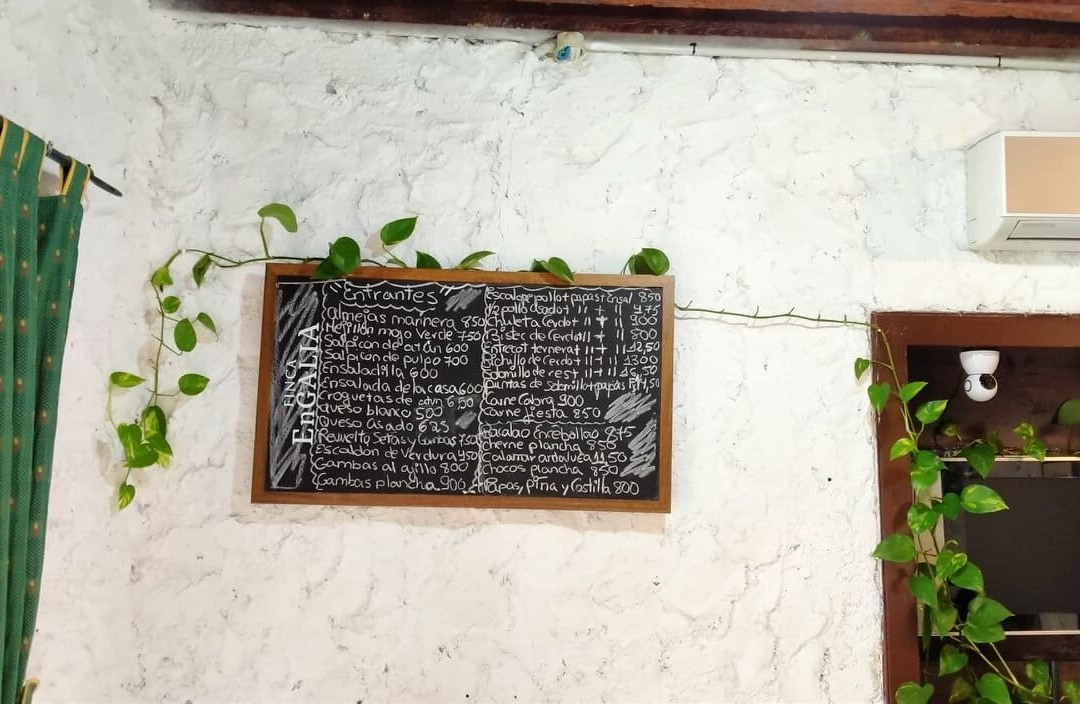 FINCA
EnGALIA
"Entrantes"
Almejas marinera 850
Mejillon mojo verde 750
Salpicon de atún 600
Salpicon de pulpo 700
Ensaladilla 600
Ensalada de la casa 600
Croquetas de atun 650
Queso blanco 500
Queso asado 625
Revuelto Setas y Gambas 750
Escaldón de Verdura 450
Gambas al ajillo 800
Gambas plancha 900
Escalope pollo + papas + Ensal 850
1/2 pollo asado + 11 + 11 975
Chuleta Cerdo + 11 + 11 900
Bistec de Cerdo 11 + 11 900
Entrecot ternera + 11 + 11 1250
Solomillo de Cerdo + 11 + 11 1300
Solomillo de res + 11 + 11
puntas de Solomillo + papas
Carne Cabra 900
Carne fiesta 850
Bacalao Encebollao 975
Cherne plancha
Calamar andaluza 1150
Chocos plancha 850
Papas, piña y Costilla 800